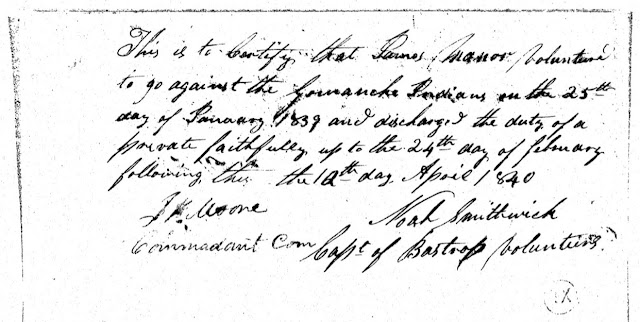 This is to Certify that James Manor Volunturd
to go against the Comanche Indians on the 25th
day of January 1839 and discharged the duty of a
private faithfully up to the 24th day of february
following this the 12th day April 1840
J H Moore
Noah Smithwick
Commadant Com
Capt of Bastrop Volunteirs
IX